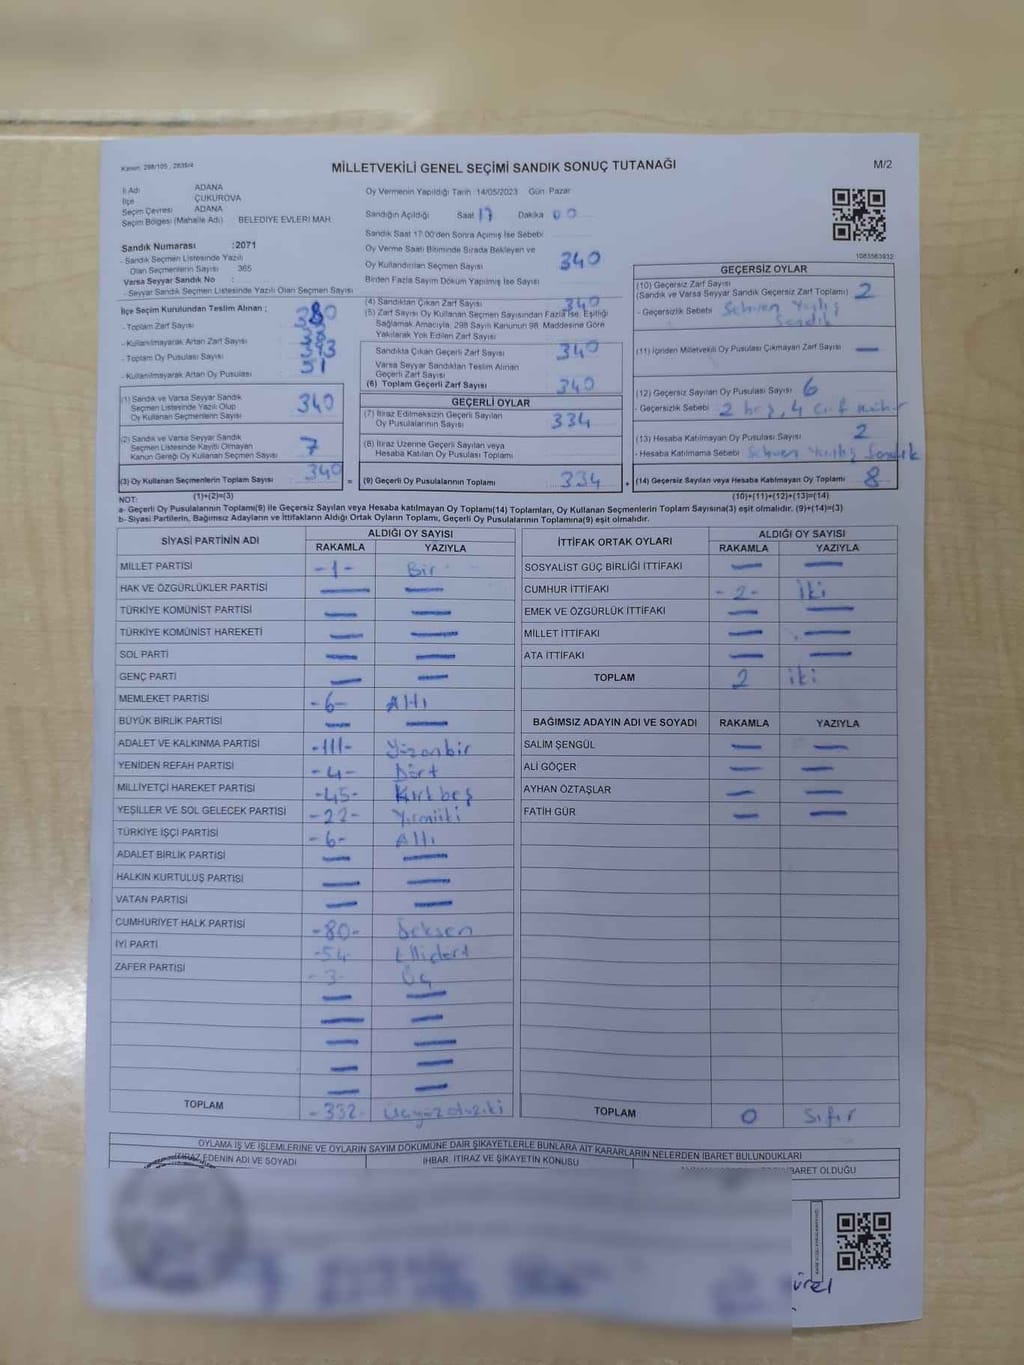 Kanun: 298/105 , 2839/4
MİLLETVEKİLİ GENEL SEÇİMİ SANDIK SONUÇ TUTANAĞI
M/2
İl Adı ADANA
İlçe ÇUKUROVA
Seçim Çevresi ADANA
Seçim Bölgesi (Mahalle Adı) : BELEDİYE EVLERİ MAH.
Sandık Numarası :2071
- Sandık Seçmen Listesinde Yazılı
Olan Seçmenlerin Sayısı 365
Varsa Seyyar Sandık No :
- Seyyar Sandık Seçmen Listesinde Yazılı Olan Seçmen Sayısı
Oy Vermenin Yapıldığı Tarih :14/05/2023 Gün: Pazar
Sandığın Açıldığı Saat 17 Dakika 00
Sandık Saat 17:00'den Sonra Açılmış İse Sebebi
Oy Verme Saati Bitiminde Sırada Bekleyen ve
Oy Kullandırılan Seçmen Sayısı 340
Birden Fazla Sayım Döküm Yapılmış İse Sayısı
1083563932
İlçe Seçim Kurulundan Teslim Alınan ;
- Toplam Zarf Sayısı 380
- Kullanılmayarak Artan Zarf Sayısı 38
- Toplam Oy Pusulası Sayısı 393
- Kullanılmayarak Artan Oy Pusulası 51
(1) Sandık ve Varsa Seyyar Sandık
Seçmen Listesinde Yazılı Olup
Oy Kullanan Seçmenlerin Sayısı 340
(2) Sandık ve Varsa Seyyar Sandık
Seçmen Listesinde Kayıtlı Olmayan
Kanun Gereği Oy Kullanan Seçmen Sayısı 7
(3) Oy Kullanan Seçmenlerin Toplam Sayısı 340
(4) Sandıktan Çıkan Zarf Sayısı 340
(5) Zarf Sayısı Oy Kullanan Seçmen Sayısından Fazla İse, Eşitliği
Sağlamak Amacıyla, 298 Sayılı Kanunun 98. Maddesine Göre
Yakılarak Yok Edilen Zarf Sayısı
Sandıkta Çıkan Geçerli Zarf Sayısı 340
Varsa Seyyar Sandıktan Teslim Alınan
Geçerli Zarf Sayısı
(6) Toplam Geçerli Zarf Sayısı 340
GEÇERLİ OYLAR
(7) İtiraz Edilmeksizin Geçerli Sayılan
Oy Pusulalarının Sayısı 334
(8) İtiraz Üzerine Geçerli Sayılan veya
Hesaba Katılan Oy Pusulası Toplamı
= (9) Geçerli Oy Pusulalarının Toplamı 334 +
GEÇERSİZ OYLAR
(10) Geçersiz Zarf Sayısı
(Sandık ve Varsa Seyyar Sandık Geçersiz Zarf Toplamı) 2
- Geçersizlik Sebebi Sehven Yanlış
Sandık
(11) İçinden Milletvekili Oy Pusulası Çıkmayan Zarf Sayısı —
(12) Geçersiz Sayılan Oy Pusulası Sayısı 6
- Geçersizlik Sebebi 2 boş, 4 çift mühür
(13) Hesaba Katılmayan Oy Pusulası Sayısı 2
- Hesaba Katılmama Sebebi Sehven Yanlış Sandık
(14) Geçersiz Sayılan veya Hesaba Katılmayan Oy Toplamı 8
NOT: (1)+(2)=(3) (10)+(11)+(12)+(13)=(14)
a- Geçerli Oy Pusulalarının Toplamı(9) ile Geçersiz Sayılan veya Hesaba katılmayan Oy Toplamı(14) Toplamları, Oy Kullanan Seçmenlerin Toplam Sayısına(3) eşit olmalıdır. (9)+(14)=(3)
b- Siyasi Partilerin, Bağımsız Adayların ve İttifakların Aldığı Ortak Oyların Toplamı, Geçerli Oy Pusulalarının Toplamına(9) eşit olmalıdır.
SİYASİ PARTİNİN ADI ALDIĞI OY SAYISI
RAKAMLA YAZIYLA
MİLLET PARTİSİ -1- Bir
HAK VE ÖZGÜRLÜKLER PARTİSİ — —
TÜRKİYE KOMÜNİST PARTİSİ — —
TÜRKİYE KOMÜNİST HAREKETİ — —
SOL PARTİ — —
GENÇ PARTİ — —
MEMLEKET PARTİSİ -6- Altı
BÜYÜK BİRLİK PARTİSİ — —
ADALET VE KALKINMA PARTİSİ -111- Yüzonbir
YENİDEN REFAH PARTİSİ -4- Dört
MİLLİYETÇİ HAREKET PARTİSİ -45- Kırkbeş
YEŞİLLER VE SOL GELECEK PARTİSİ -22- Yirmiiki
TÜRKİYE İŞÇİ PARTİSİ -6- Altı
ADALET BİRLİK PARTİSİ — —
HALKIN KURTULUŞ PARTİSİ — —
VATAN PARTİSİ — —
CUMHURİYET HALK PARTİSİ -80- Seksen
İYİ PARTİ -54- Ellidört
ZAFER PARTİSİ -3- Üç
— —
— —
— —
— —
— —
TOPLAM -332- Üçyüzotuziki
İTTİFAK ORTAK OYLARI ALDIĞI OY SAYISI
RAKAMLA YAZIYLA
SOSYALİST GÜÇ BİRLİĞİ İTTİFAKI — —
CUMHUR İTTİFAKI -2- İki
EMEK VE ÖZGÜRLÜK İTTİFAKI — —
MİLLET İTTİFAKI — —
ATA İTTİFAKI — —
TOPLAM 2 iki
BAĞIMSIZ ADAYIN ADI VE SOYADI RAKAMLA YAZIYLA
SALİM ŞENGÜL — —
ALİ GÖÇER — —
AYHAN ÖZTAŞLAR — —
FATİH GÜR — —
TOPLAM 0 Sıfır
OYLAMA İŞ VE İŞLEMLERİNE VE OYLARIN SAYIM DÖKÜMÜNE DAİR ŞİKAYETLERLE BUNLARA AİT KARARLARIN NELERDEN İBARET BULUNDUKLARI
İTİRAZ EDENİN ADI VE SOYADI İHBAR, İTİRAZ VE ŞİKAYETİN KONUSU İBARET OLDUĞU